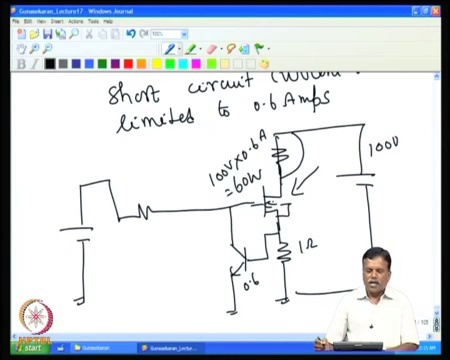 Gunasekaran_Lecture17 - Windows Journal
File Edit View Insert Actions Tools Help
short circuit
limited to 0.6 Amps
100V x 0.6A
= 60W
100V
1Ω
0.6
start
Gunasekaran
Gunasekaran_Lectu...